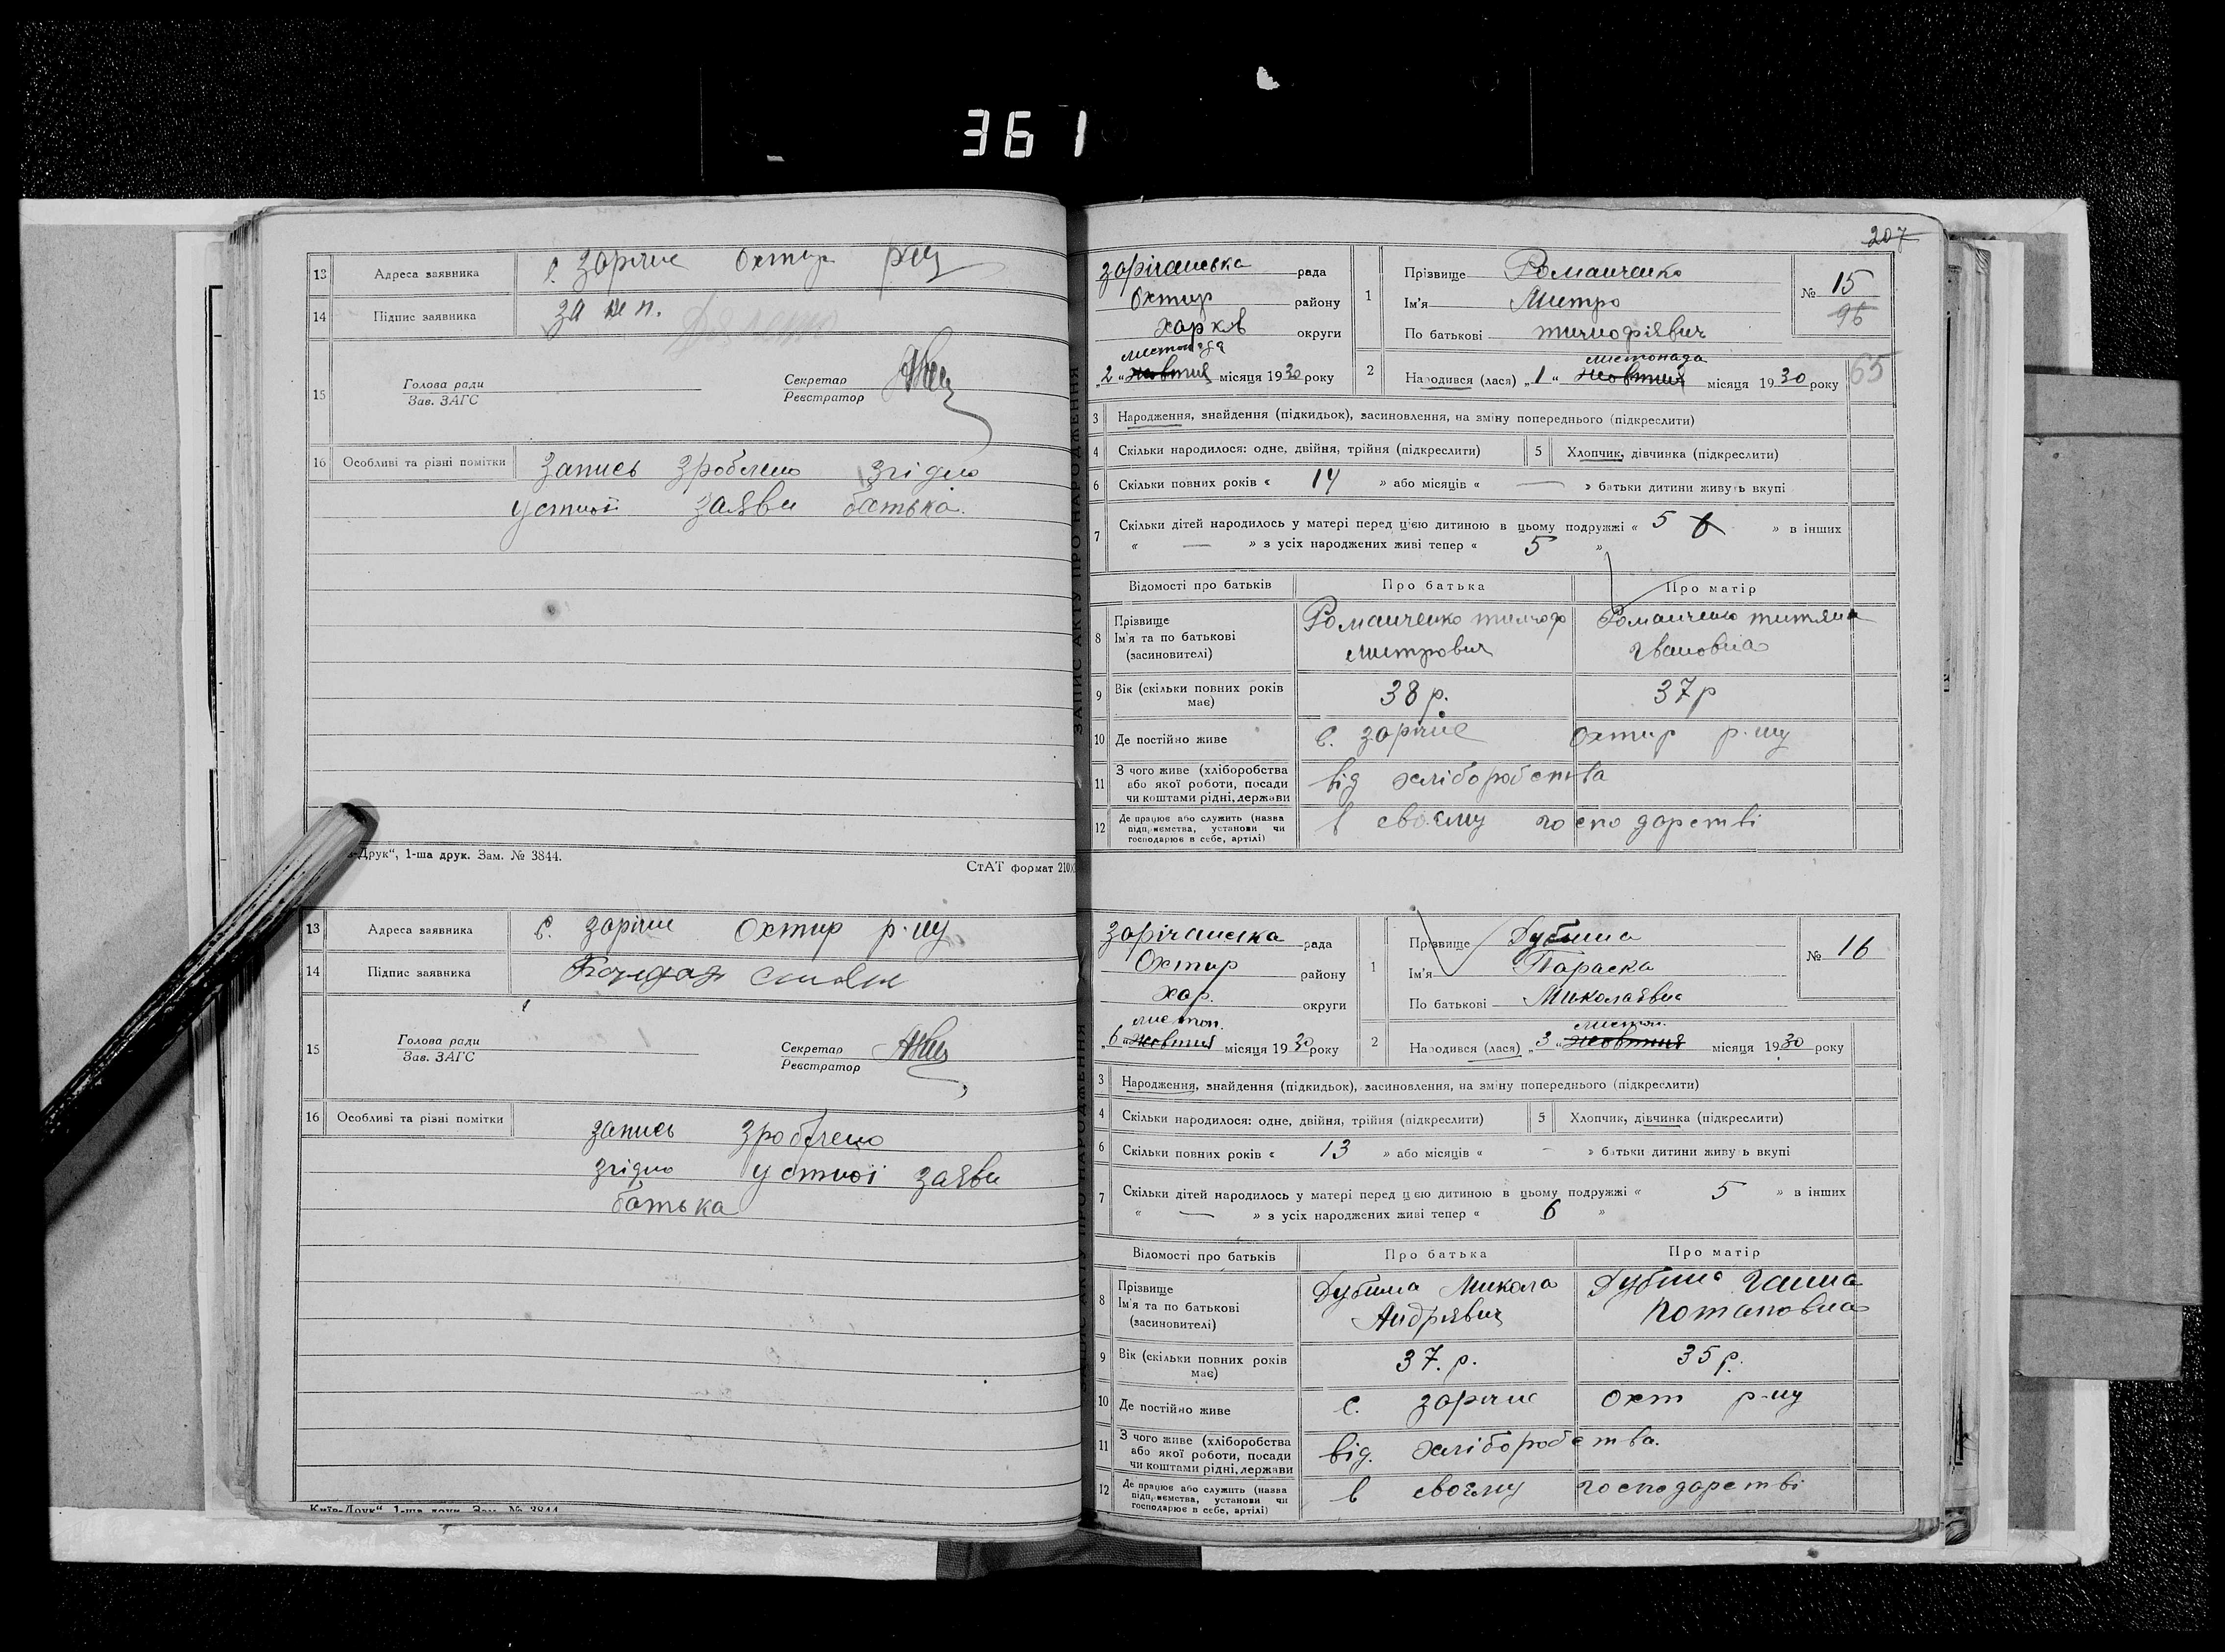 361
13 Адреса заявника с. Зарічне Охтир р-ну
14 Підпис заявника за неп.
15 Голова ради
Зав. ЗАГС
Секретар
Реєстратор
16 Особливі та різні помітки Запись зроблено згідно
устної заяви батька.
-Друк“, 1-ша друк. Зам. № 3844.
СтАТ формат 210
13 Адреса заявника с. зарічне Охтир р-ну
14 Підпис заявника
15 Голова ради
Зав. ЗАГС
Секретар
Реєстратор
16 Особливі та різні помітки запись зроблено
згідно устної заяви
батька
Київ-Друк“, 1-ша друк. Зам. № 3844
ЗАПИС АКТУ ПРО НАРОДЖЕННЯ
207
зарічанська рада
Охтир району
Харків округи
листопада
„2“ жовтня місяця 1930 року
1 Прізвище Романченко
Ім'я Митро
По батькові тимофіявич
№ 15
96
листопада
2 Народився (лася) „1“ жовтня місяця 1930 року
65
3 Народження, знайдення (підкидьок), засиновлення, на зміну попереднього (підкреслити)
4 Скільки народилося: одне, двійня, трійня (підкреслити) 5 Хлопчик, дівчинка (підкреслити)
6 Скільки повних років « 14 » або місяців « — » батьки дитини живуть вкупі
7 Скільки дітей народилось у матері перед цією дитиною в цьому подружжі « 5 6 » в інших
« — » з усіх народжених живі тепер « 5 »
Відомості про батьків Про батька Про матір
8 Прізвище
Ім'я та по батькові
(засиновителі)
Романченко тимофо
митрович
Романченко титяна
Івановна
9 Вік (скільки повних років має) 38 р. 37 р
10 Де постійно живе с. зарічне Охтир р-ну
11 З чого живе (хліборобства
або якої роботи, посади
чи коштами рідні, держави
від хліборобства
12 Де працює або служить (назва
підприємства, установи чи
господарює в себе, артілі)
в своєму господарстві
зарічанська рада
Охтир району
Хар. округи
листоп.
„6“ жовтня місяця 1930 року
1 Прізвище Дубина
Ім'я Параска
По батькові Миколаявна
№ 16
листоп.
2 Народився (лася) „3“ жовтня місяця 1930 року
3 Народження, знайдення (підкидьок), засиновлення, на зміну попереднього (підкреслити)
4 Скільки народилося: одне, двійня, трійня (підкреслити) 5 Хлопчик, дівчинка (підкреслити)
6 Скільки повних років « 13 » або місяців « - » батьки дитини живуть вкупі
7 Скільки дітей народилось у матері перед цією дитиною в цьому подружжі « 5 » в інших
« — » з усіх народжених живі тепер « 6 »
Відомості про батьків Про батька Про матір
8 Прізвище
Ім'я та по батькові
(засиновителі)
Дубина Микола
Андріявич
Дубина Ганна
Потаповна
9 Вік (скільки повних років має) 37. р. 35 р.
10 Де постійно живе с. зарічне Охт р-ну
11 З чого живе (хліборобства
або якої роботи, посади
чи коштами рідні, держави
від. хліборобства.
12 Де працює або служить (назва
підприємства, установи чи
господарює в себе, артілі)
в своєму господарстві